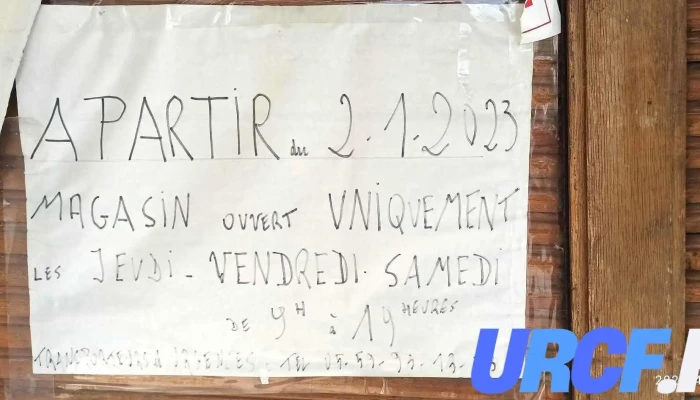 A PARTIR du 2.1.2023
MAGASIN OUVERT UNIQUEMENT
LES JEUDI - VENDREDI. SAMEDI
DE 9H à 19 HEURES
TRANSPORTEURS & URGENCES : TEL 05-59-93-13-
URCF.